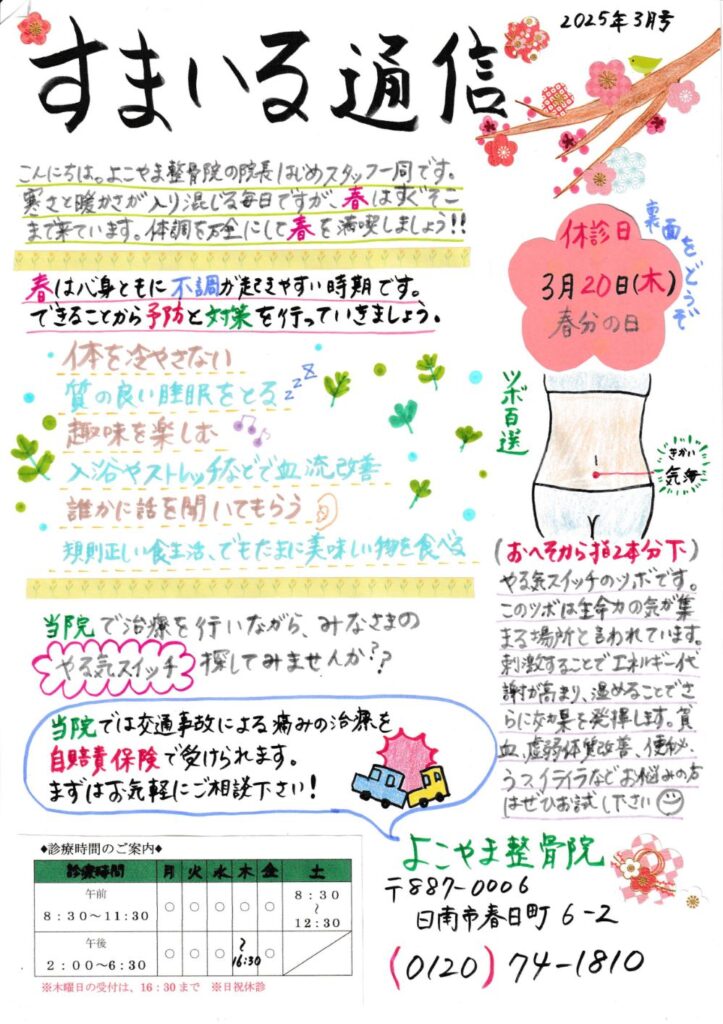 2025年3月号
すまいる通信
こんにちは。よこやま整骨院の院長はじめスタッフ一同です。
寒さと暖かさが入り混じる毎日ですが、春はすぐそこ
まで来ています。体調を万全にして春を満喫しましょう!!
裏面をどうぞ
休診日
3月20日(木)
春分の日
春は心身ともに不調が起きやすい時期です。
できることから予防と対策を行っていきましょう。
体を冷やさない
質の良い睡眠をとる zzz
趣味を楽しむ
入浴やストレッチなどで血流改善
誰かに話を聞いてもらう
規則正しい食生活、でもたまに美味しい物を食べる
ツボ百選
きかい
気海
(おへそから指2本分下)
やる気スイッチのツボです。
このツボは生命力の気が集
まる場所と言われています。
刺激することでエネルギー代
謝が高まり、温めることでさ
らに効果を発揮します。貧
血、虚弱体質改善、便秘、
うつ、イライラなどお悩みの方
はぜひお試し下さい
当院で治療を行いながら、みなさまの
やる気スイッチ探してみませんか??
当院では交通事故による痛みの治療を
自賠責保険で受けられます。
まずはお気軽にご相談下さい!
◆診療時間のご案内◆
診療時間 月 火 水 木 金 土
午前 8:30~11:30 ○ ○ ○ ○ ○ 8:30~12:30
午後 2:00~6:30 ○ ○ ○ ~16:30 ○
※木曜日の受付は、16:30まで ※日祝休診
よこやま整骨院
〒887-0006
日南市春日町6-2
(0120)74-1810